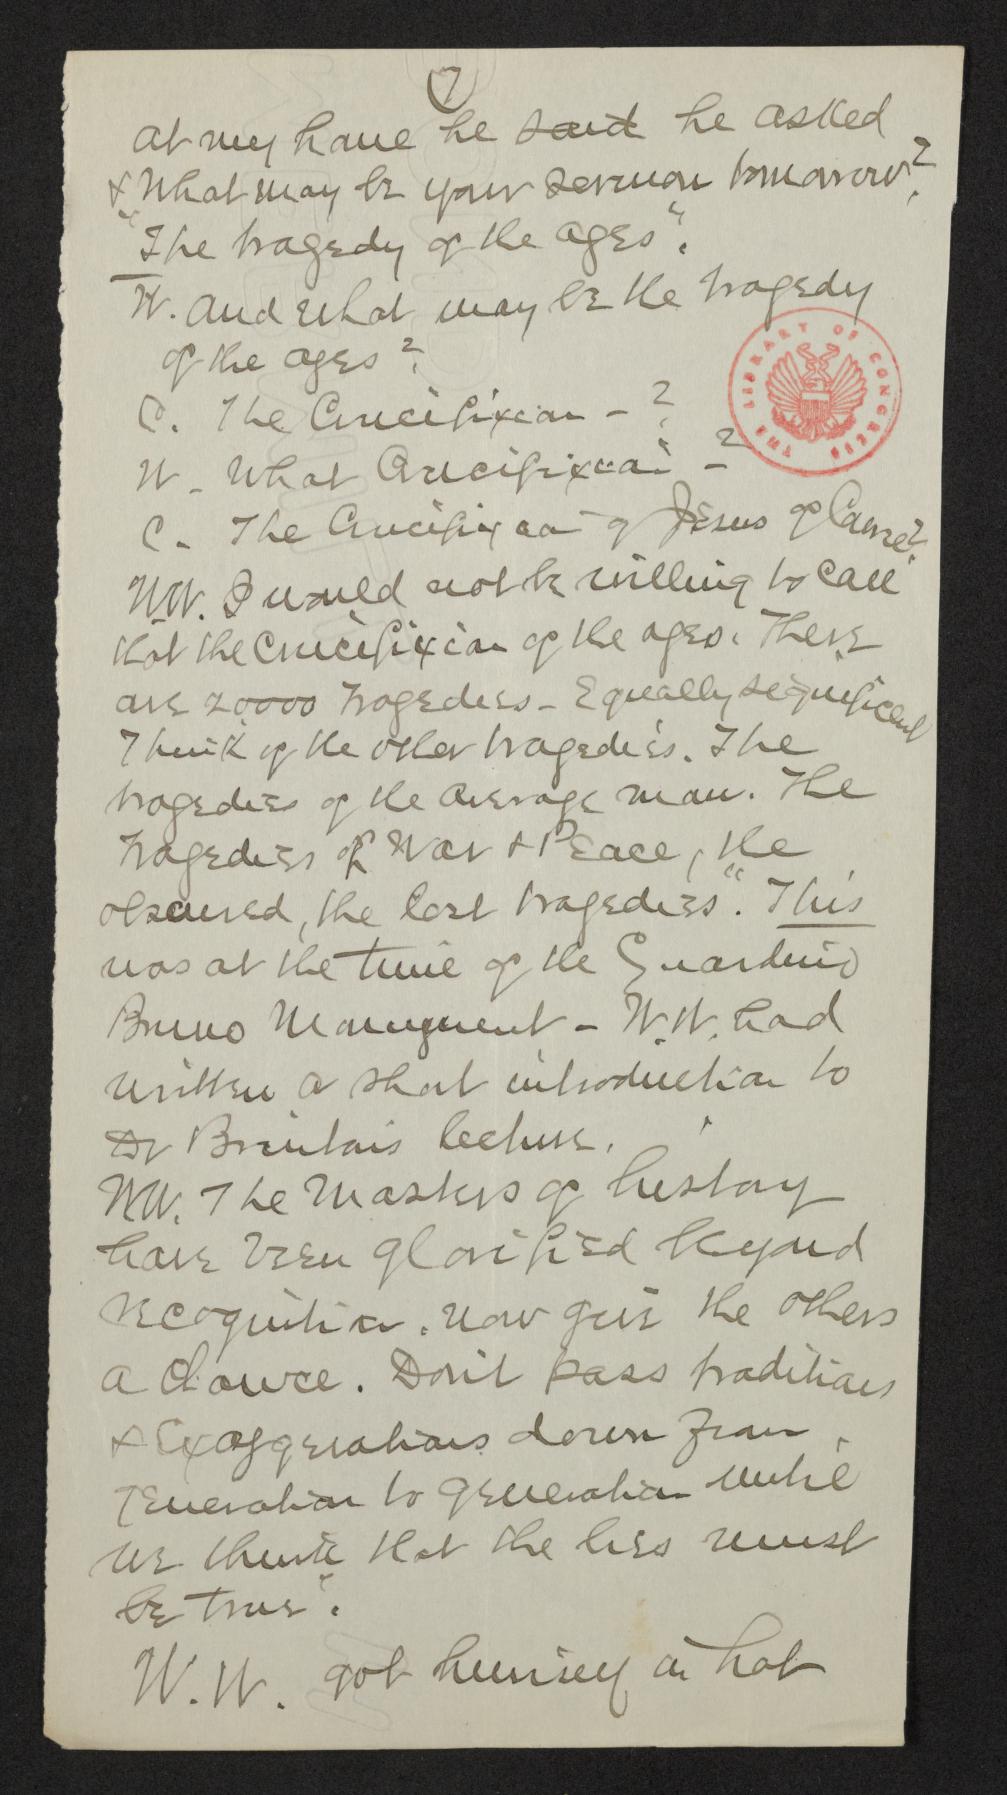 7
at my home he said he asked
& What may be your sermon tomorrow?
"The tragedy of the ages".
W. And what may be the tragedy
of the ages?
C. The Crucifixion - ?
W - What Crucifixion - ?
C. The Crucifixion of Jesus of
WW. I would not be willing to call
that the Crucifixion of the ages. There
are 20000 tragedies - Equally significent
Think of the other tragedies. The
tragedies of the average man. The
tragedies of War & Peace, the
obscured, the lost tragedies". This
was at the time of the Guardino
Bruno Monument - W.W. had
written a short introduction to
Dr Brintons lecture.
WW. The Masters of history
have been glorified beyond
recognition. Now give the others
a chance. Don't pass traditions
& Exaggerations down from
generation to generation until
we think that the lies must
be true".
W.W. got himself in hot
THE LIBRARY OF CONGRESS